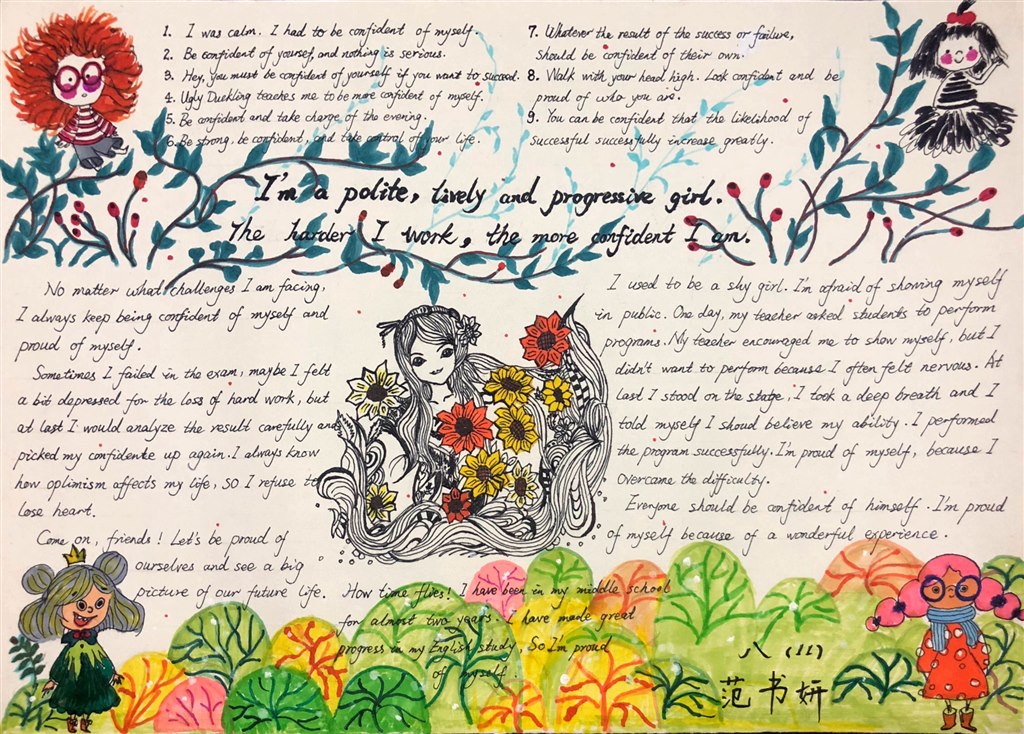 1. I was calm. I had to be confident of myself.
2. Be confident of yoursef, and nothing is serious.
3. Hey, you must be confident of yourself if you want to succeed.
4. Ugly Duckling teaches me to be more confident of myself.
5. Be confident and take charge of the evening.
6. Be strong, be confident, and take control of your life.
7. Whatever the result of the success or failure,
should be confident of their own.
8. Walk with your head high. Look confident and be
proud of who you are.
9. You can be confident that the likelihood of
successful successfully increase greatly.
I'm a polite, lively and progressive girl.
The harder I work, the more confident I am.
No matter what challenges I am facing,
I always keep being confident of myself and
proud of myself.
Sometimes I failed in the exam, maybe I felt
a bit depressed for the loss of hard work, but
at last I would analyze the result carefully and
picked my confidente up again. I always know
how oplimism affects my life, so I refuse to
lose heart.
Come on, friends! Let's be proud of
ourselves and see a big
picture of our future life.
How time flies! I have been in my middle school
for almost two years. I have made great
progress in my English study, So I'm proud
of myself.
I used to be a shy girl. I'm afraid of showing myself
in public. One day, my teacher asked students to perform
programs. My teacher encouraged me to show myself, but I
didn't want to perform because I often felt nervous. At
last I stood on the stage, I took a deep breath and I
told myself I shoud believe my ability. I performed
the program successfully. I'm proud of myself, because I
overcame the difficulty.
Everyone should be confident of himself. I'm proud
of myself because of a wonderful experience.
八(11)
范书妍